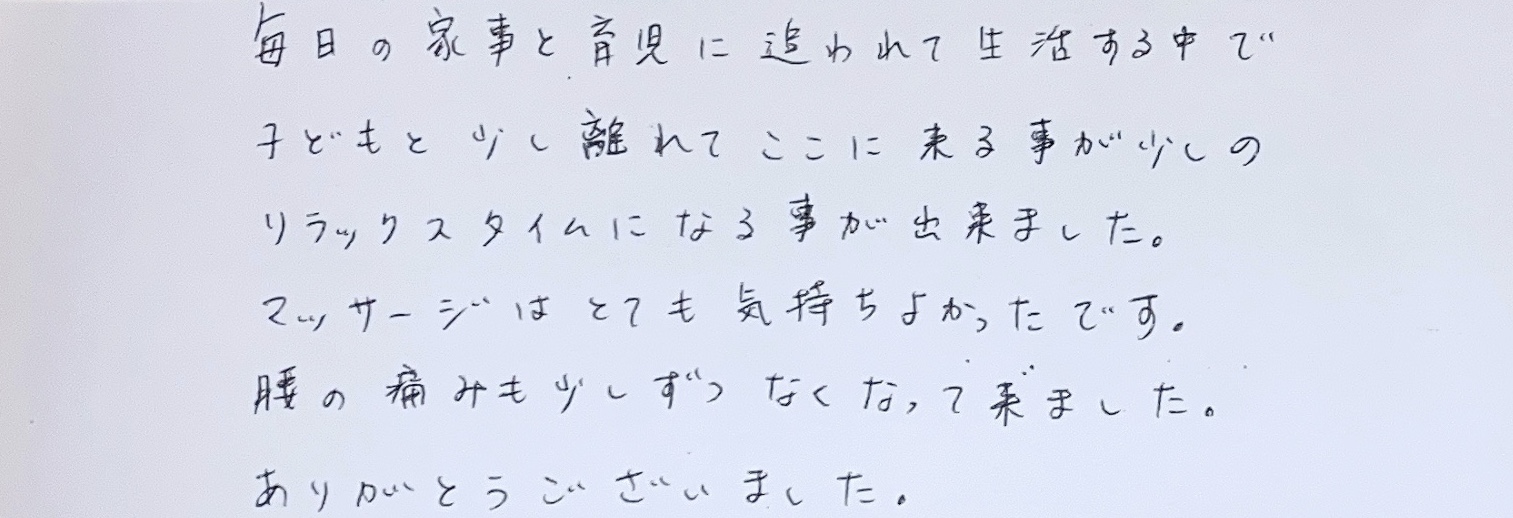 毎日の家事と育児に追われて生活する中で
子どもと少し離れてここに来る事が少しの
リラックスタイムになる事が出来ました。
マッサージはとても気持ちよかったです。
腰の痛みも少しずつなくなって来ました。
ありがとうございました。